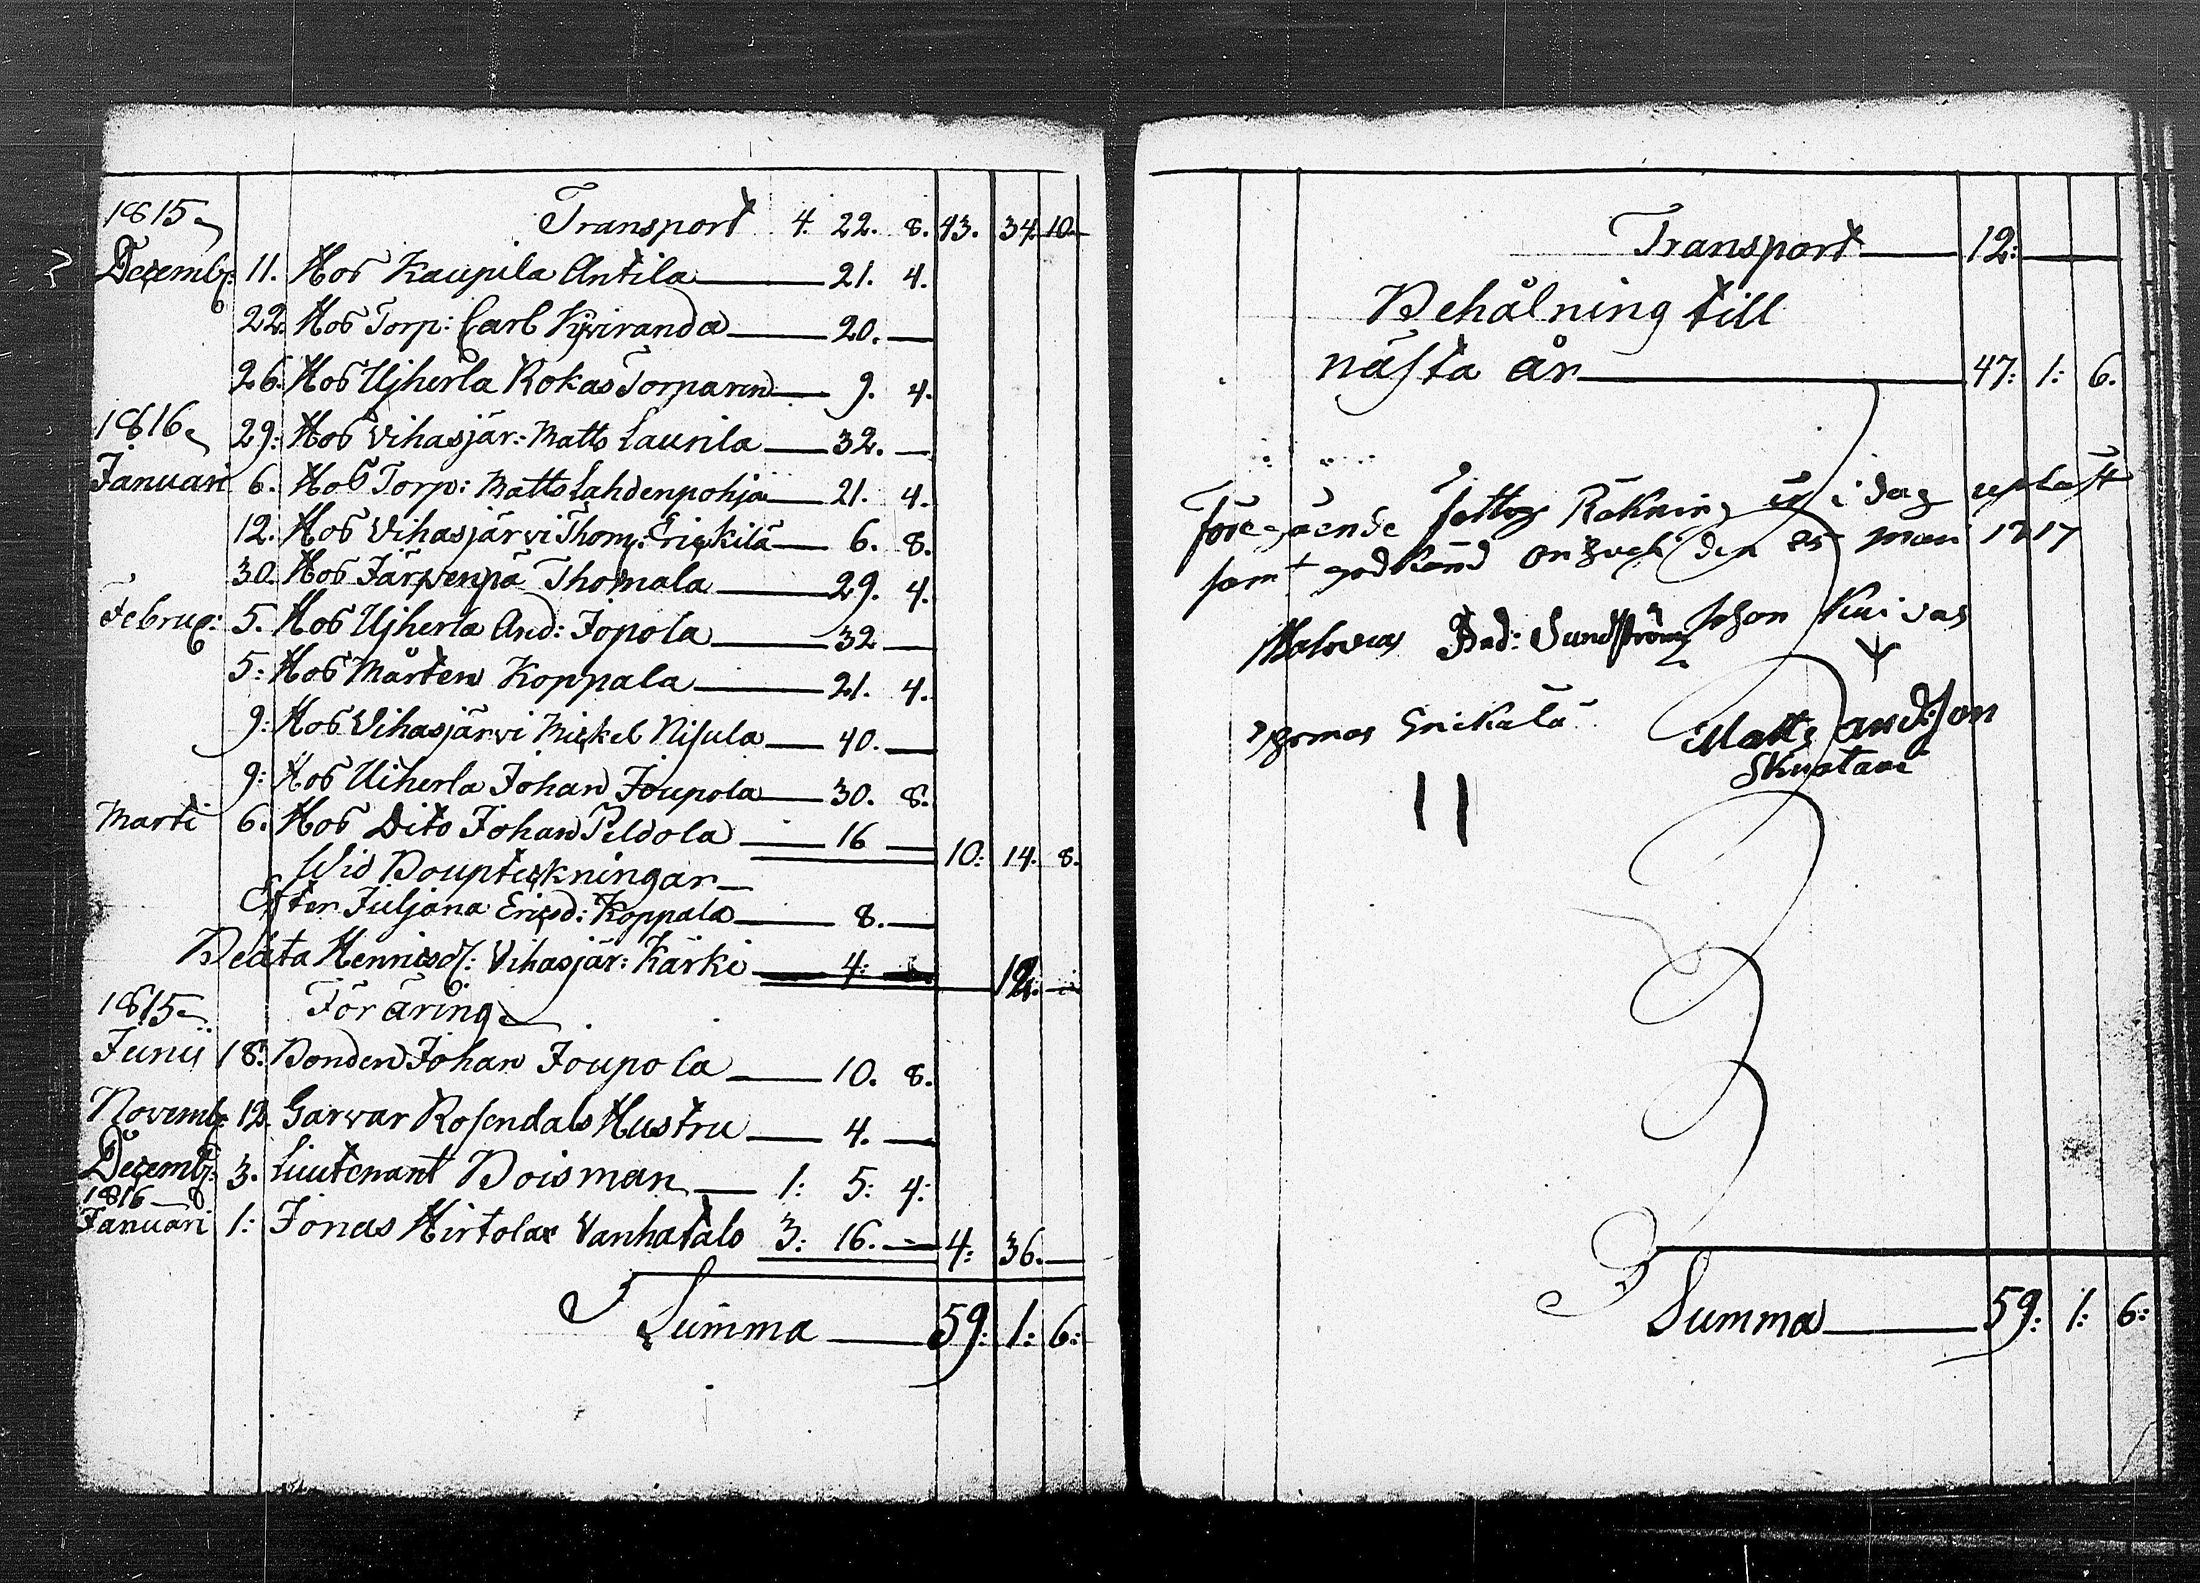 1815
Transport 4. 22. 8. 43. 34. 10.
Decemb: 11. Hos Kaupila Antila 21. 4.
22. Hos Torp: Carl Kjviranda 20. —
26. Hos Ujherla Rokas Torparen 9. 4.
1816 29: Hos Vihasjär: Matts Laurila 32. —
Januari 6. Hos Torp: Matts Lahdenpohja 21. 4.
12. Hos Vihasjärvi Thom: Erickilä 6. 8.
30. Hos Järpenpä Thomala 29. 4.
Februa: 5. Hos Ujherla And: Jopola 32 —
5: Hos Mårten Koppala 21. 4.
9: Hos Vihasjärvi Mickel Nisula 40. —
9: Hos Uiherla Johan Joupola 30. 8.
Marti 6. Hos Dito Johan Peldola 16 — 10: 14. 8.
Wid Bouptickningar
Efter Juljana Ericsd: Koppala 8. —
Beata Henricsd: Vihasjär: Kärki 4: — 12. —
1815 Föräring
Junii 18: Bonden Johan Joupola 10. 8.
Novemb: 12. Garvar Rosendals Hustru 4. —
Decemb: 3. Lieutenant Boisman 1: 5: 4:
1816
Januari 1: Jonas Hirtolax Vanhatalo 3: 16. — 4: 36. —
Summa 59: 1: 6:
Transport 12: —
Behålning till
nästa år 47: 1: 6.
Föregående Räkning är i dag upläst
samt godkänd den 25 1817
Bad: Sundström Johan Kuivas
Thomas Erickälä Matts andsson